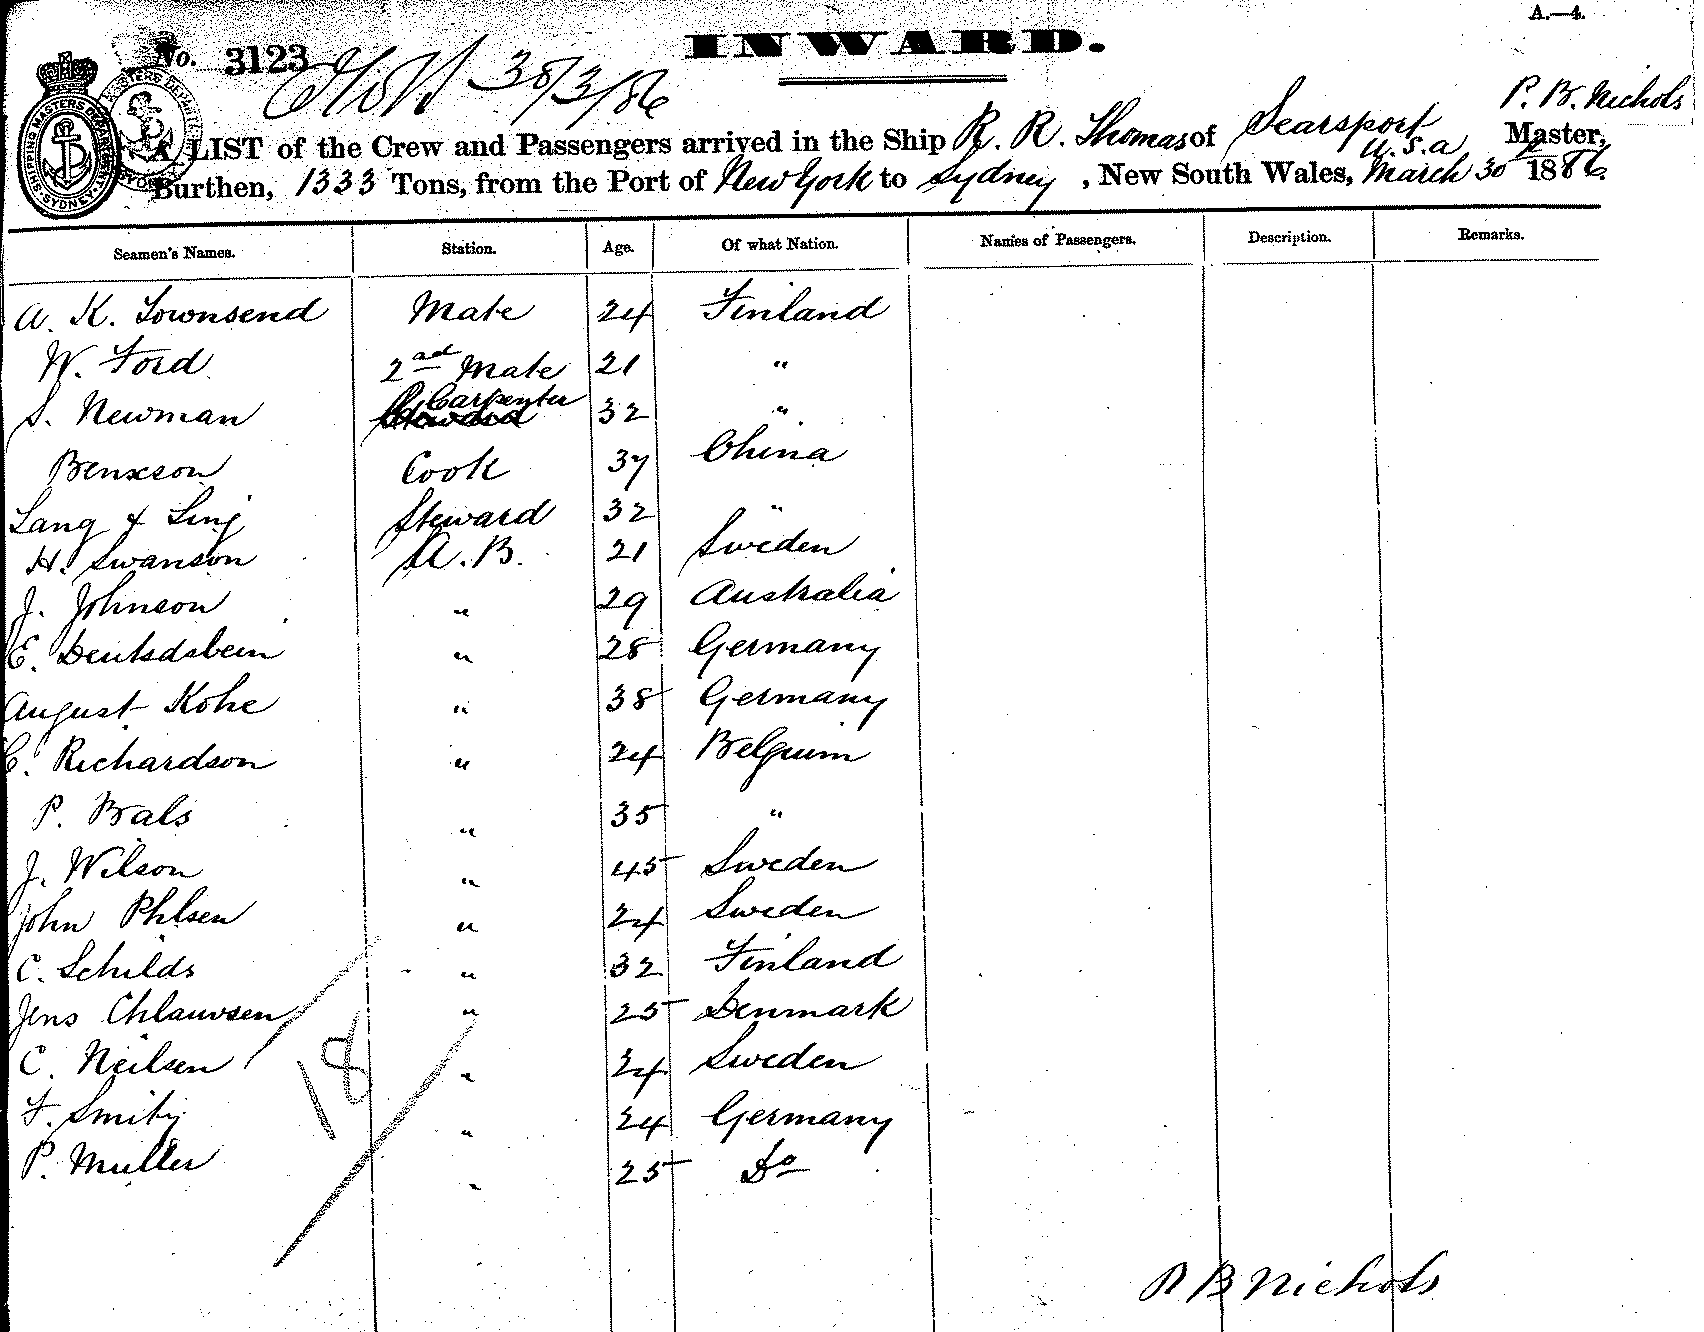 A.—4.
No. 3123 30/3/86 INWARD.
P. B. Nichols
A LIST of the Crew and Passengers arrived in the Ship R. R. Thomas of Searsport U.S.a Master,
Burthen, 1333 Tons, from the Port of New York to Sydney, New South Wales, March 30 1886.
SHIPPING MASTERS DEPARTMENT SYDNEY
Seamen's Names. Station. Age. Of what Nation. Names of Passengers. Description. Remarks.
A. K. Townsend Mate 24 Finland
W. Ford 2nd Mate 21 "
S. Newman Carpenter 32 "
Benxson Cook 37 China
Lang & Sing Steward 32 "
H. Swanson A.B. 21 Sweden
J. Johnson " 29 Australia
E. Deutsdsbein " 28 Germany
August Kohe " 38 Germany
C. Richardson " 24 Belguim
P. Bals " 35 "
J. Wilson " 45 Sweden
John Phlsen " 24 Sweden
C. Schilds " 32 Finland
Jens Chlauvsen " 25 Denmark
C. Neilsen " 24 Sweden
18
F. Smity " 24 Germany
P. Muller " 25 Do
P B Nichols